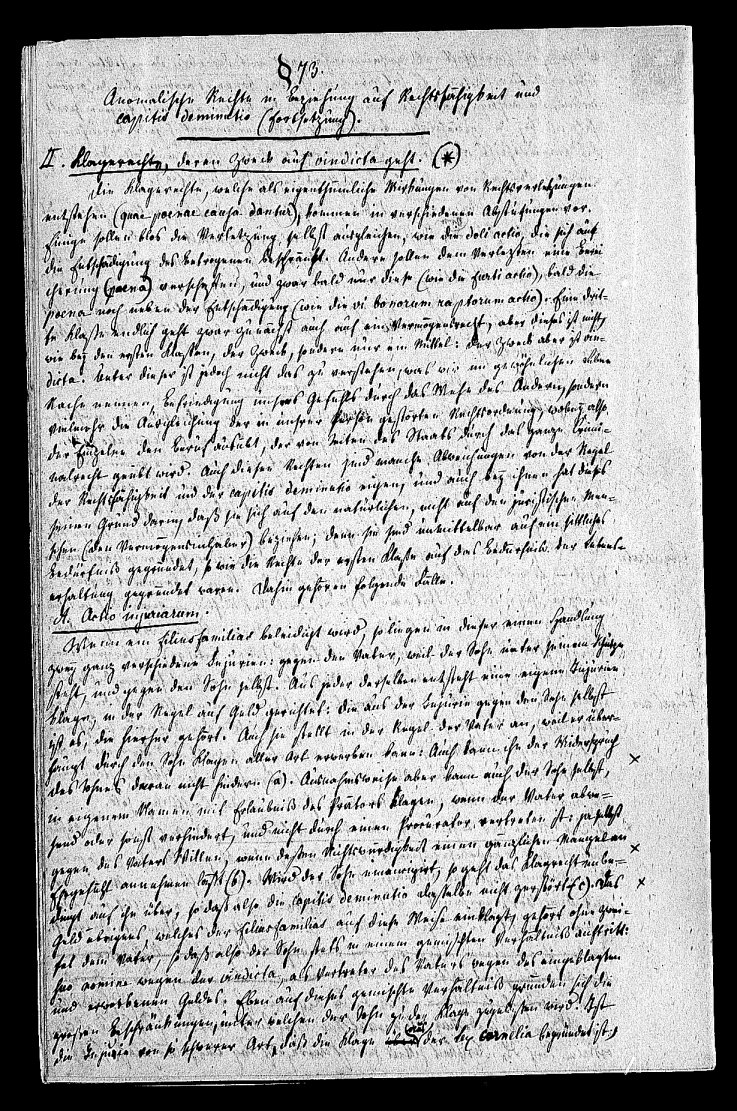 § 73.
Anomalische Rechte in Beziehung auf Rechtsfähigkeit und
capitis deminutio (Fortsetzung).
II. Klagerechte, deren Zweck auf vindicta geht. (*)
Die Klagerechte, welche als eigenthümliche Wirkungen von Rechtsverletzungen
entstehen (quae poenae causa dantur), kommen in verschiedenen Abstufungen vor.
Einige sollen blos die Verletzung selbst ausgleichen, wie die doli actio, die sich auf
die Entschädigung des Betrogenen beschränkt. Andere sollen dem Verletzten eine Berei
cherung (poena) verschaffen, und zwar bald nur diese (wie die furti actio), bald die
poena noch neben der Entschädigung (wie die vi bonorum raptorum actio). Eine drit-
te Klasse endlich geht zwar zunächst auch auf ein Vermögensrecht, aber dieses ist nicht,
wie bey den ersten Klassen, der Zweck, sondern nur ein Mittel: der Zweck aber ist vin-
dicta. Unter dieser ist jedoch nicht das zu verstehen, was wir im gewöhnlichen Leben
Rache nennen, Befriedigung unsres Gefühls durch das Wehe des Andern, sondern
vielmehr die Ausgleichung der in unsrer Person gestörten Rechtsordnung, wobey also
der Einzelne den Beruf ausübt, der von Seiten des Staats durch das ganze Crimi-
nalrecht geübt wird. Auch diesen Rechten sind manche Abweichungen von der Regel
der Rechtsfähigkeit und der capitis deminutio eigen, und auch bey ihnen hat dieses
seinen Grund darin, daß sie sich auf den natürlichen, nicht auf den juristischen Men-
schen (den Vermögensinhaber) beziehen; denn sie sind unmittelbar auf ein sittliches
Bedürfniß gegründet, so wie die Rechte der ersten Klasse auf das Bedürfniß der Lebens-
erhaltung gegründet waren. Dahin gehören folgende Fälle.
A. Actio injuriarum.
Wenn ein filiusfamilias beleidigt wird, so liegen in dieser einen Handlung
zwey ganz verschiedene Injurien: gegen den Vater, weil der Sohn unter seinem Schutze
steht, und gegen den Sohn selbst. Aus jeder derselben entsteht eine eigene Injurien
klage, in der Regel auf Geld gerichtet: die aus der Injurie gegen den Sohn selbst
ist es, die hierher gehört. Auch sie stellt in der Regel der Vater an, weil er über-
haupt durch den Sohn Klagen aller Art erwerben kann: Auch kann ihn der Widerspruch
des Sohnes daran nicht hindern (a). Ausnahmsweise aber kann auch der Sohn selbst,
in eigenem Namen, mit Erlaubniß des Prätors klagen, wenn der Vater abwe-
send oder sonst verhindert, und nicht durch einen Procurator vertreten ist: ja selbst
gegen des Vaters Willen, wenn dessen Nichtswürdigkeit einen gänzlichen Mangel an
Ehrgefühl annehmen läßt (b). Wird der Sohn emancipirt, so geht das Klagrecht unbe-
dingt auf ihn über, so daß also die capitis deminutio dasselbe nicht zerstört (c). Das
Geld übrigens, welches der filiusfamilias auf diese Weise einklagt, gehört ohne Zwei-
fel dem Vater, so daß also der Sohn stets in einem gemischten Verhältniß auftritt:
suo nomine wegen der vindicta, als Vertreter des Vaters wegen des eingeklagten
und erworbenen Geldes. Eben auf dieses gemischte Verhältniß gründen sich die
großen Beschränkungen, unter welchen der Sohn zu der Klage zugelassen wird. Ist
die Injurie von so schwerer Art, daß die Klage aus der lex Cornelia begründet ist,